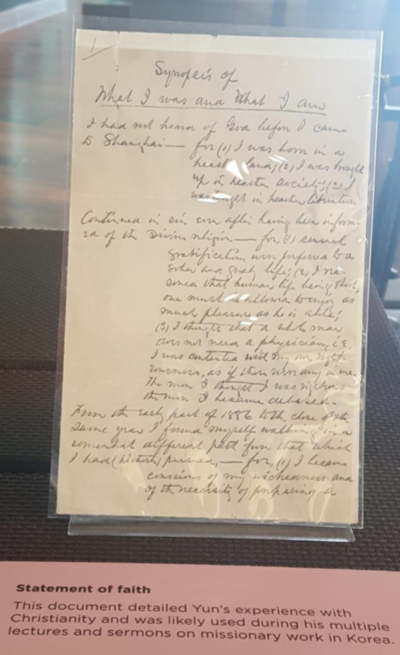 1
Synopsis of
What I was and What I am
I had not heard of God before I came
to Shanghai — for (1) I was born in a
heathen land; (2) I was brought
up in heathen society; (3) I
was taught in heathen literature
Continued in sin even after having been inform-
ed of the Divine religion — for, (1) sensual
gratification was preferred to a
sober and godly life; (2) I rea-
soned that human life being short,
one must be allowed to enjoy as
much pleasure as he is able;
(3) I thought that a whole man
does not need a physician, i.e.
I was contented with my own right-
eousness, as if there were any in me.
The more I thought I was righteous
the more I became debased.
From the early part of 1886 to the close of the
same year I found myself walking in a
somewhat different path from that which
I had (hitherto) pursued, — for, (1) I became
conscious of my wickedness and
of the necessity of preparing
Statement of faith
This document detailed Yun's experience with
Christianity and was likely used during his multiple
lectures and sermons on missionary work in Korea.